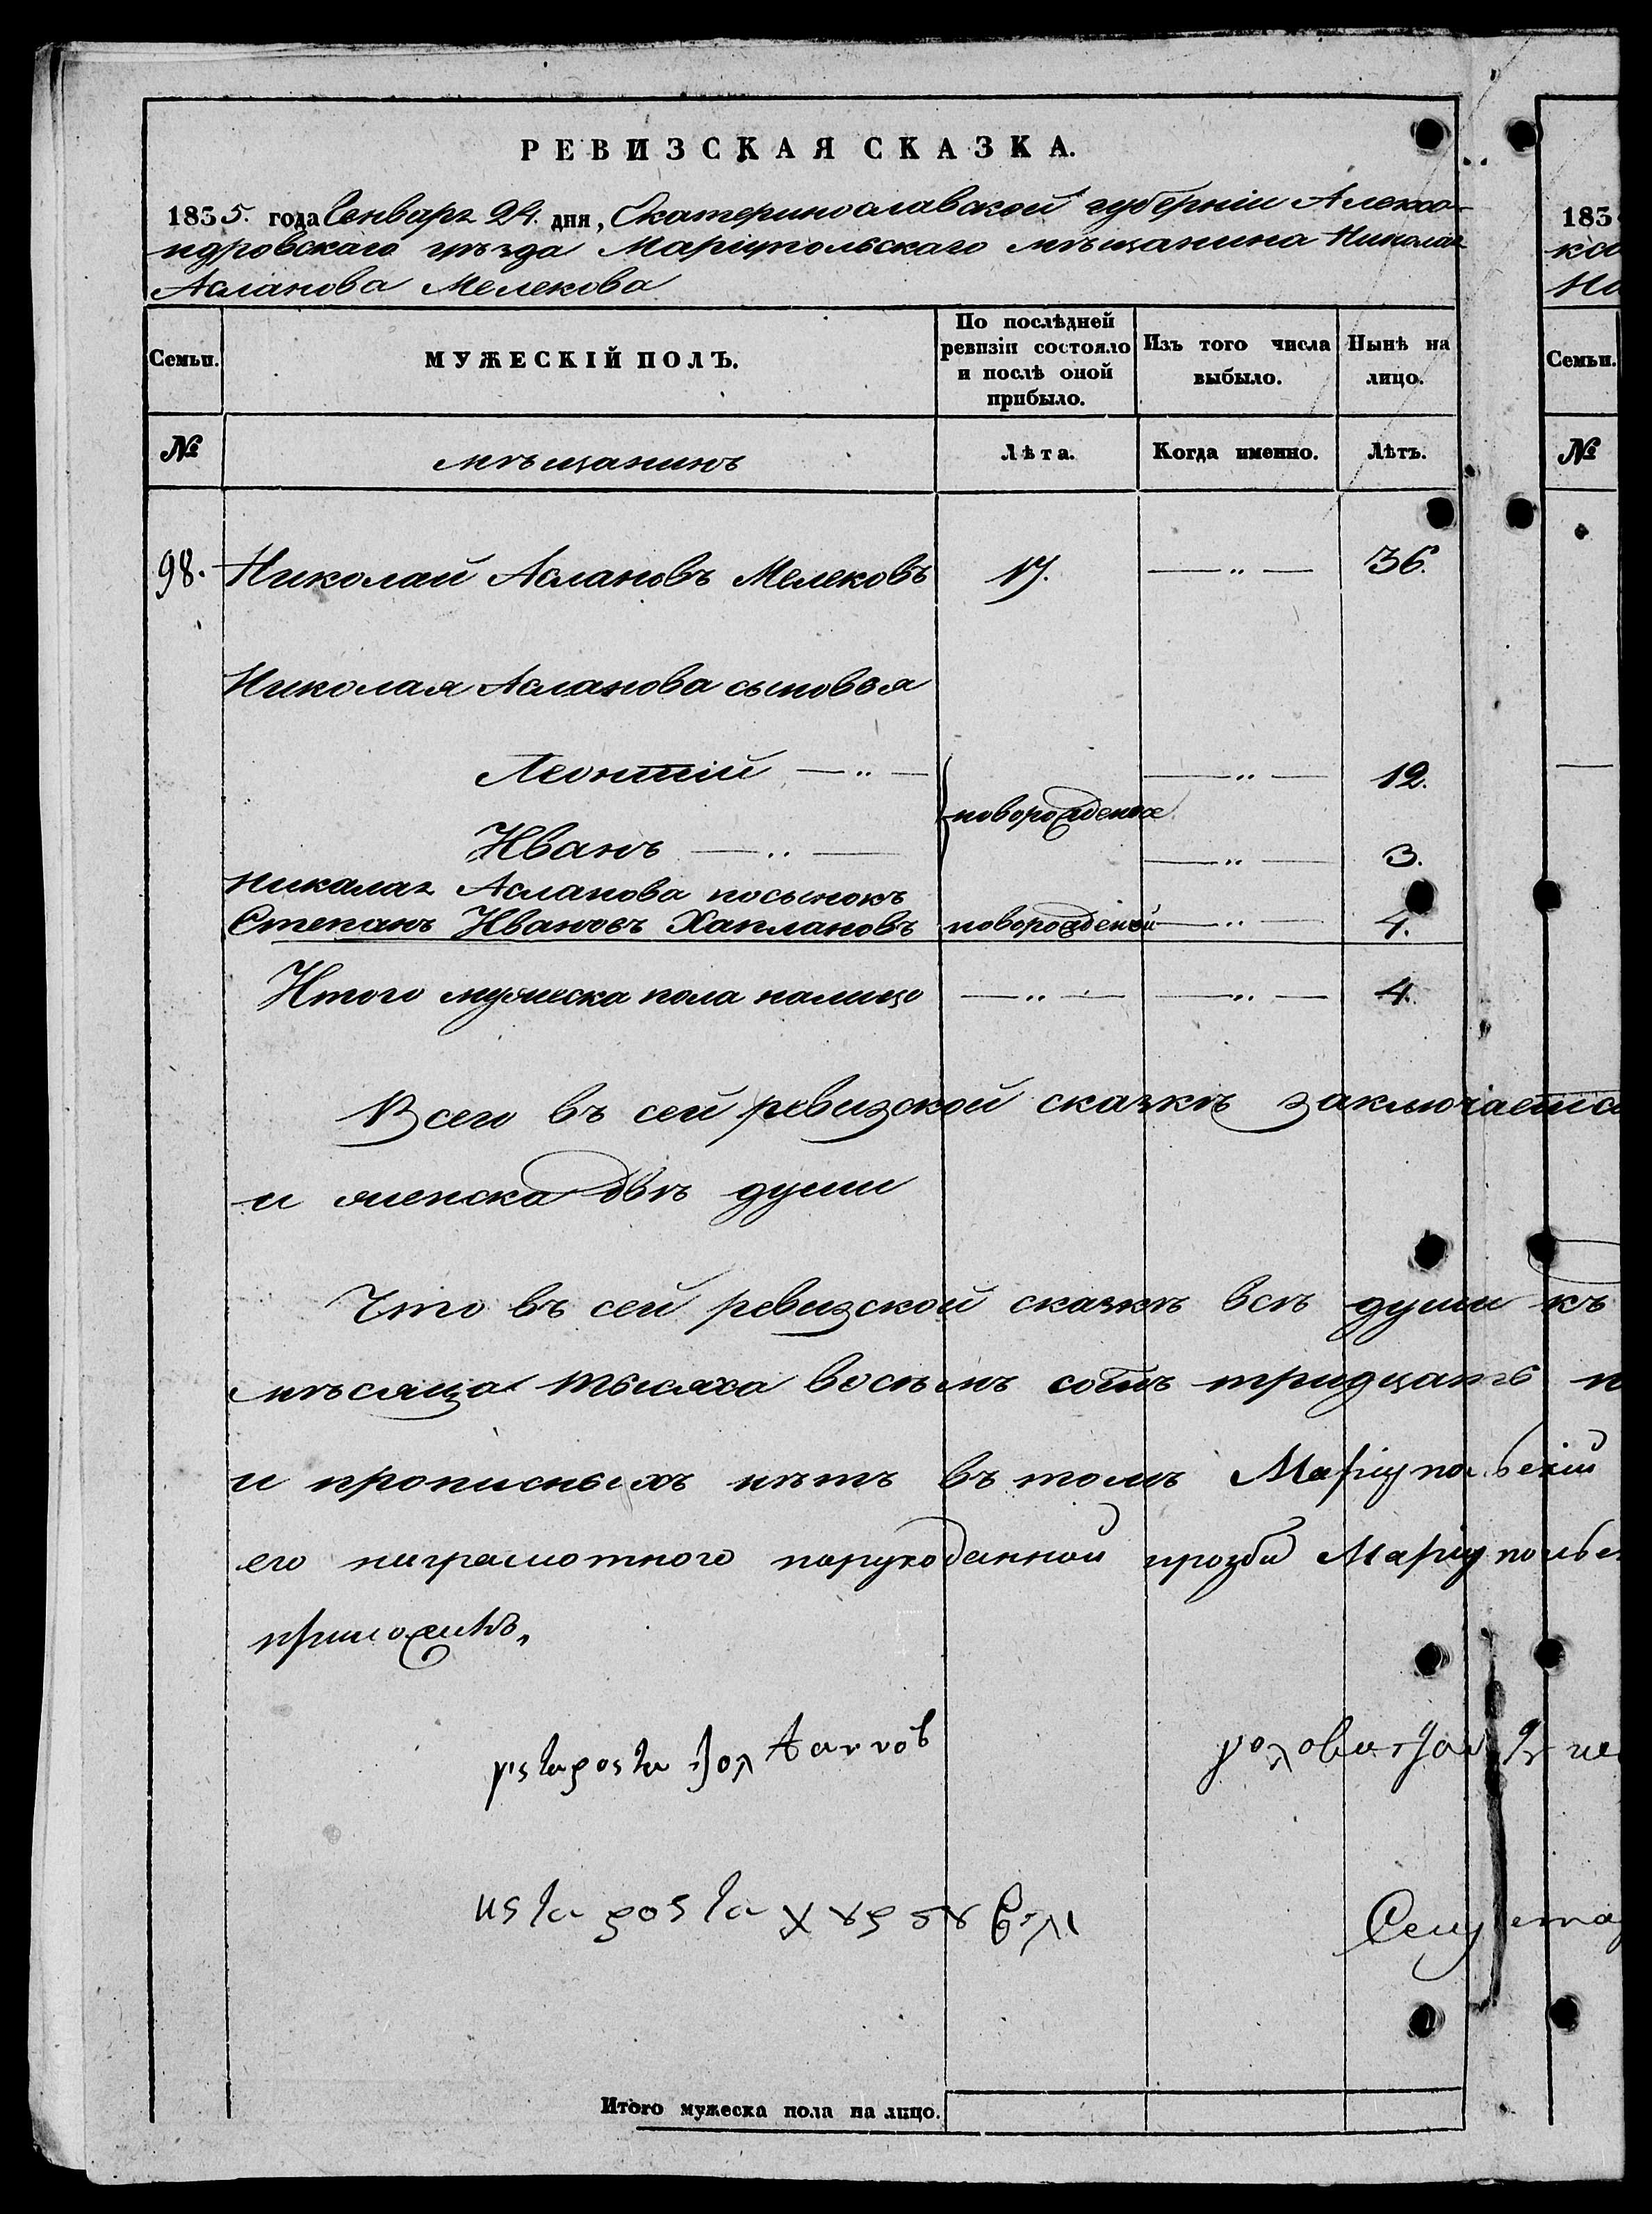 РЕВИЗСКАЯ СКАЗКА.
1835. года Генваря 24. дня, Екатеринославской губерніи Алекса-
ндровскаго уѣзда Маріупольскаго мѣщанина Николая
Асланова Мелекова
Семьи.
МУЖЕСКІЙ ПОЛЪ.
По послѣдней ревизіи состояло и послѣ оной прибыло.
Изъ того числа выбыло.
Нынѣ на лицо.
№
мѣщанинъ
Лѣта.
Когда именно.
Лѣтъ.
98. Николай Аслановъ Мелековъ 17. — „ — 36.
Николая Асланова сыновья
Леонтій — „ — — „ — 12.
новорожденые
Иванъ — „ — — „ — 3.
Николая Асланова посынокъ
Степанъ Ивановъ Хаплановъ новорожденый — „ — 4.
Итого мужеска пола налицо — „ — — „ — 4.
Всего въ сей ревизской сказкѣ заключается
и женска двѣ души
Что въ сей ревизской сказкѣ всѣ души къ
мѣсяца тысяча восемъ сотъ тридцать
и прописныхъ нѣтъ въ томъ Маріупольскій
его награмотного порукоданной прозби Маріуполь
приложилъ,
Итого мужеска пола на лицо.
183
Семьи.
№